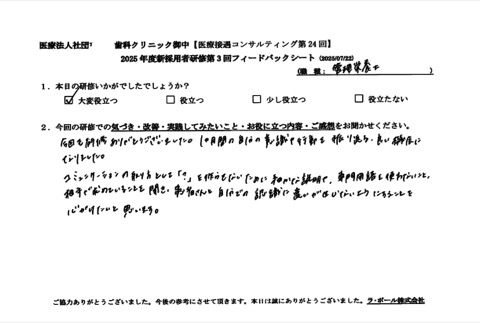 医療法人社団 歯科クリニック御中【医療接遇コンサルティング第24回】
2025年度新採用者研修第3回フィードバックシート (2025/07/22)
(職 種: 管理栄養士 )
1.本日の研修いかがでしたでしょうか?
☑大変役立つ □役立つ □少し役立つ □役立たない
2.今回の研修での気づき・改善・実践してみたいこと・お役に立つ内容・ご感想をお聞かせください。
今回も研修ありがとうございました。1ヶ月間の自分の意識や行動を振り返る良い機会に
なりました。
コミュニケーションの取り方として「?」を作らせないために細かな説明や、専門用語を使わないこと、
相手が求めていることを聞き、患者さんと自分での認識に違いがでないようにすることを
心がけたいと思います。
ご協力ありがとうございました。今後の参考にさせて頂きます。本日は誠にありがとうございました。ラ・ポール株式会社